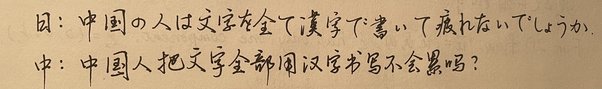 日：中国の人は文字を全て漢字で書いて疲れないでしょうか.
中：中国人把文字全部用汉字书写不会累吗？